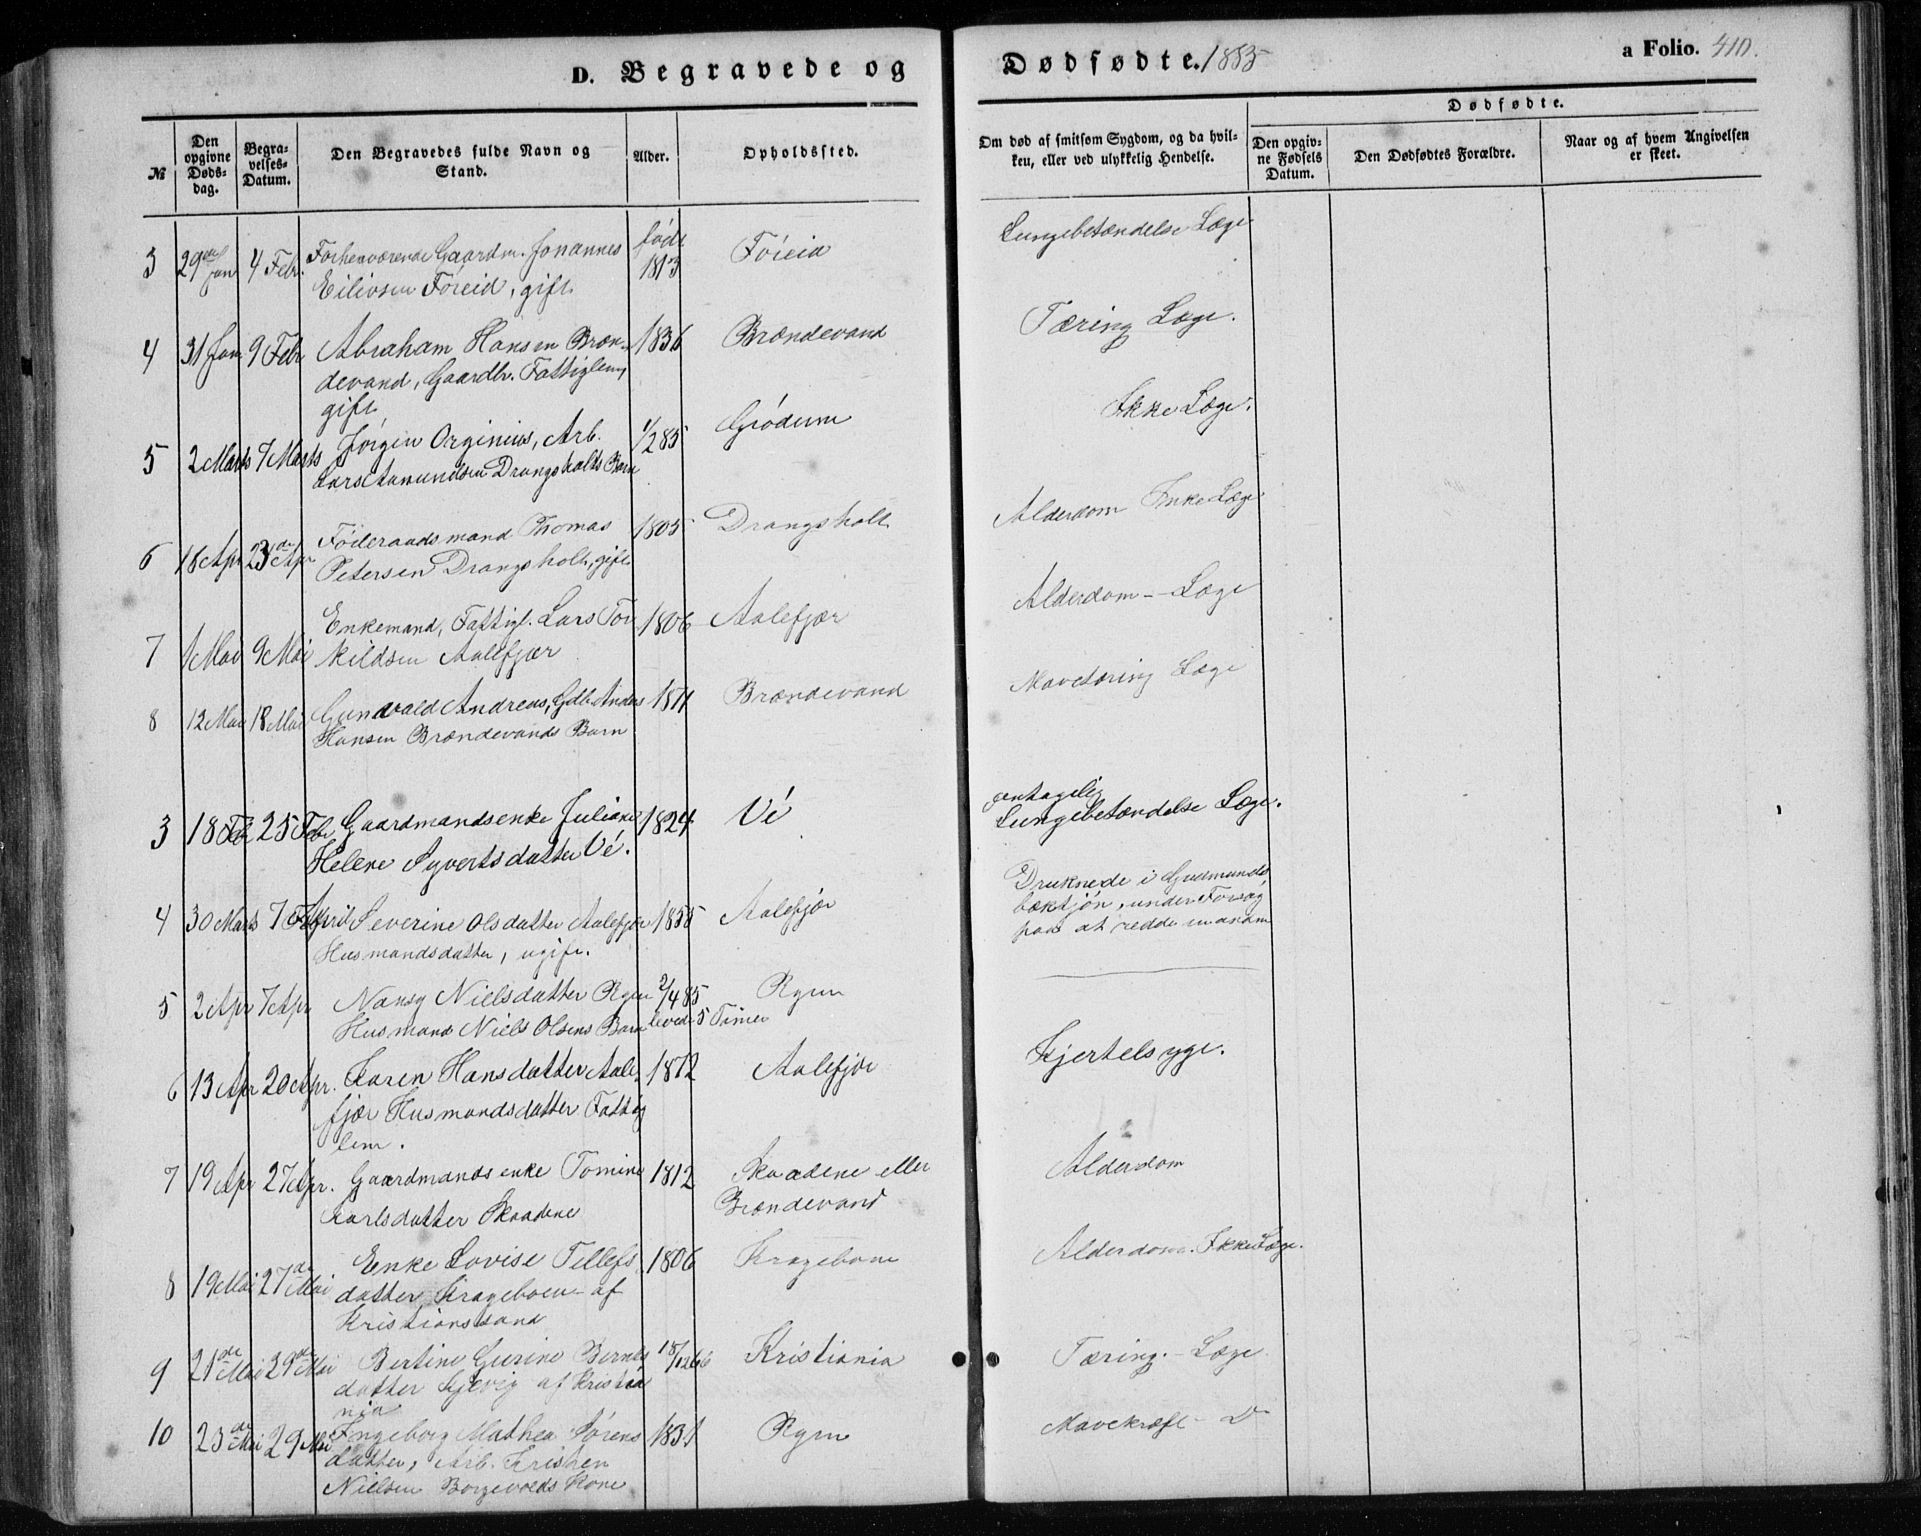 D. Begravede og Dødfødte. 1885 a Folio. 410.
№ Den opgivne Dødsdag. Begravelses-Datum. Den Begravedes fulde Navn og Stand. Alder. Opholdssted. Om død af smitsom Sygdom, og da hvilken, eller ved ulykkelig Hendelse. Dødfødte. Den opgivne Fødsels Datum. Den Dødfødtes Forældre. Naar og af hvem Angivelsen er skeet.
3 29de Jan 4 Febr. Forhenværende Gaardm. Johannes født 1813 Föreid Lungebetændelse Læge
Eilivsen Föreid, gift
4 31 Jan 9 Febr Abraham Hansen Bræn- 1836 Brændevand Tæring Læge.
devand, Gaardbr. Fattiglem,
gift
5 2 Marts 7 Marts Jörgen Orginius, Arb. 1/2 85 Gródum Ikke Læge.
Lars Aamundsen Drangsholts Barn
6 18 Apr 23de Apr Föderaadsmand Thomas 1805 Drangsholt Alderdom Ikke Læge
Petersen Drangsholt, gift
7 1 Mai 9 Mai Enkemand, Fattigl. Lars Tor 1806 Aalefjær Alderdom -- Læge
kildsen Aalefjær
8 12 Mai 18 Mai Gunvald Andreas, Gdb. Anders 1871 Brændevand Mavetæring Læge
Hansen Brændevands Barn
3 18 Feb 25 Febr Gaardmandsenke Juliane 1824 Vé gentagelig
Lungebetændelse Læge.
Helene Syvertsdatter Vé.
4 30 Marts 7 April Severine Olsdatter Aalefjær 1855 Aalefjær Druknede i Gudmunds
bæktjön, under Forsøg
Husmandsdatter, ugift. paa at redde en anden
5 2 Apr 7 Apr Nansy Nielsdatter Ryen 2/4 85 Ryen
Husmand Niels Olsens Barn levede 5 Timer
6 13 Apr 20 Apr. Karen Hansdatter Aale- 1872 Aalefjær Kjertelsyge.
fjær Husmandsdatter Fattig
lem.
7 19 Apr 27 Apr. Gaardmandsenke Tomine 1812 Skaadene eller Alderdom
Karlsdatter Skaadene Brændevand
8 19 Mai 27de Mai Enke Lovise Tellefs 1806 Krageboen Alderdom. Ikke Læge.
datter Krageboen - af
Kristianssand
9 21de Mai 29de Mai Bertine Gurine Bernts 18/12 66 Kristiania Tæring. - Læge
datter Kjevig af Kristia
nia
10 23de Mai 29 Mai Ingeborg Mathea Sörens 1831 Ryen Mavekræft - D
datter, Arb. Kristen
Nielsen Borgevolds Kone